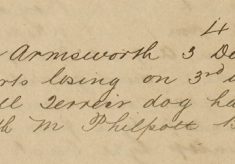 4
Armsworth 3 De
rts losing on 3rd
ll Terreir dog ha
th M Philpott h